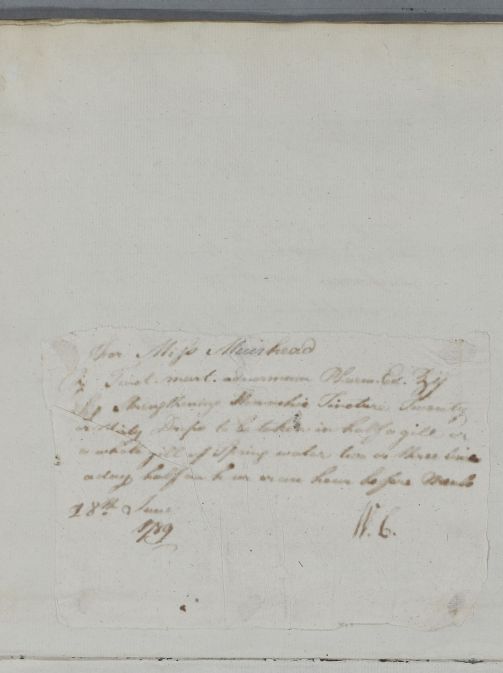 For Miss Muirhead
℞ Tinct. mart. Pharm. Ed. ℥ij
Sig Strengthening Tincture Twenty
or thirty Drops to be taken in half a gill or
a whole gill of Spring water two or three times
a day half an hour or an hour before Meals
18th June
1789 W. C.